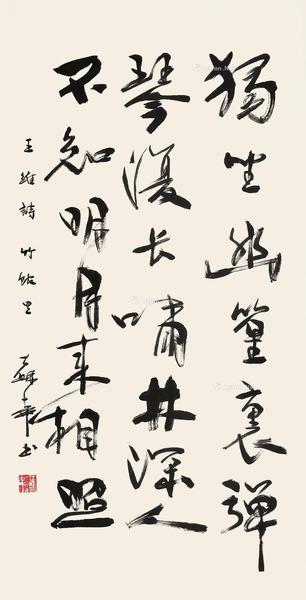 獨坐幽篁裏彈
琴復长嘯林深人
不知明月来相照
王維詩 竹館里
书